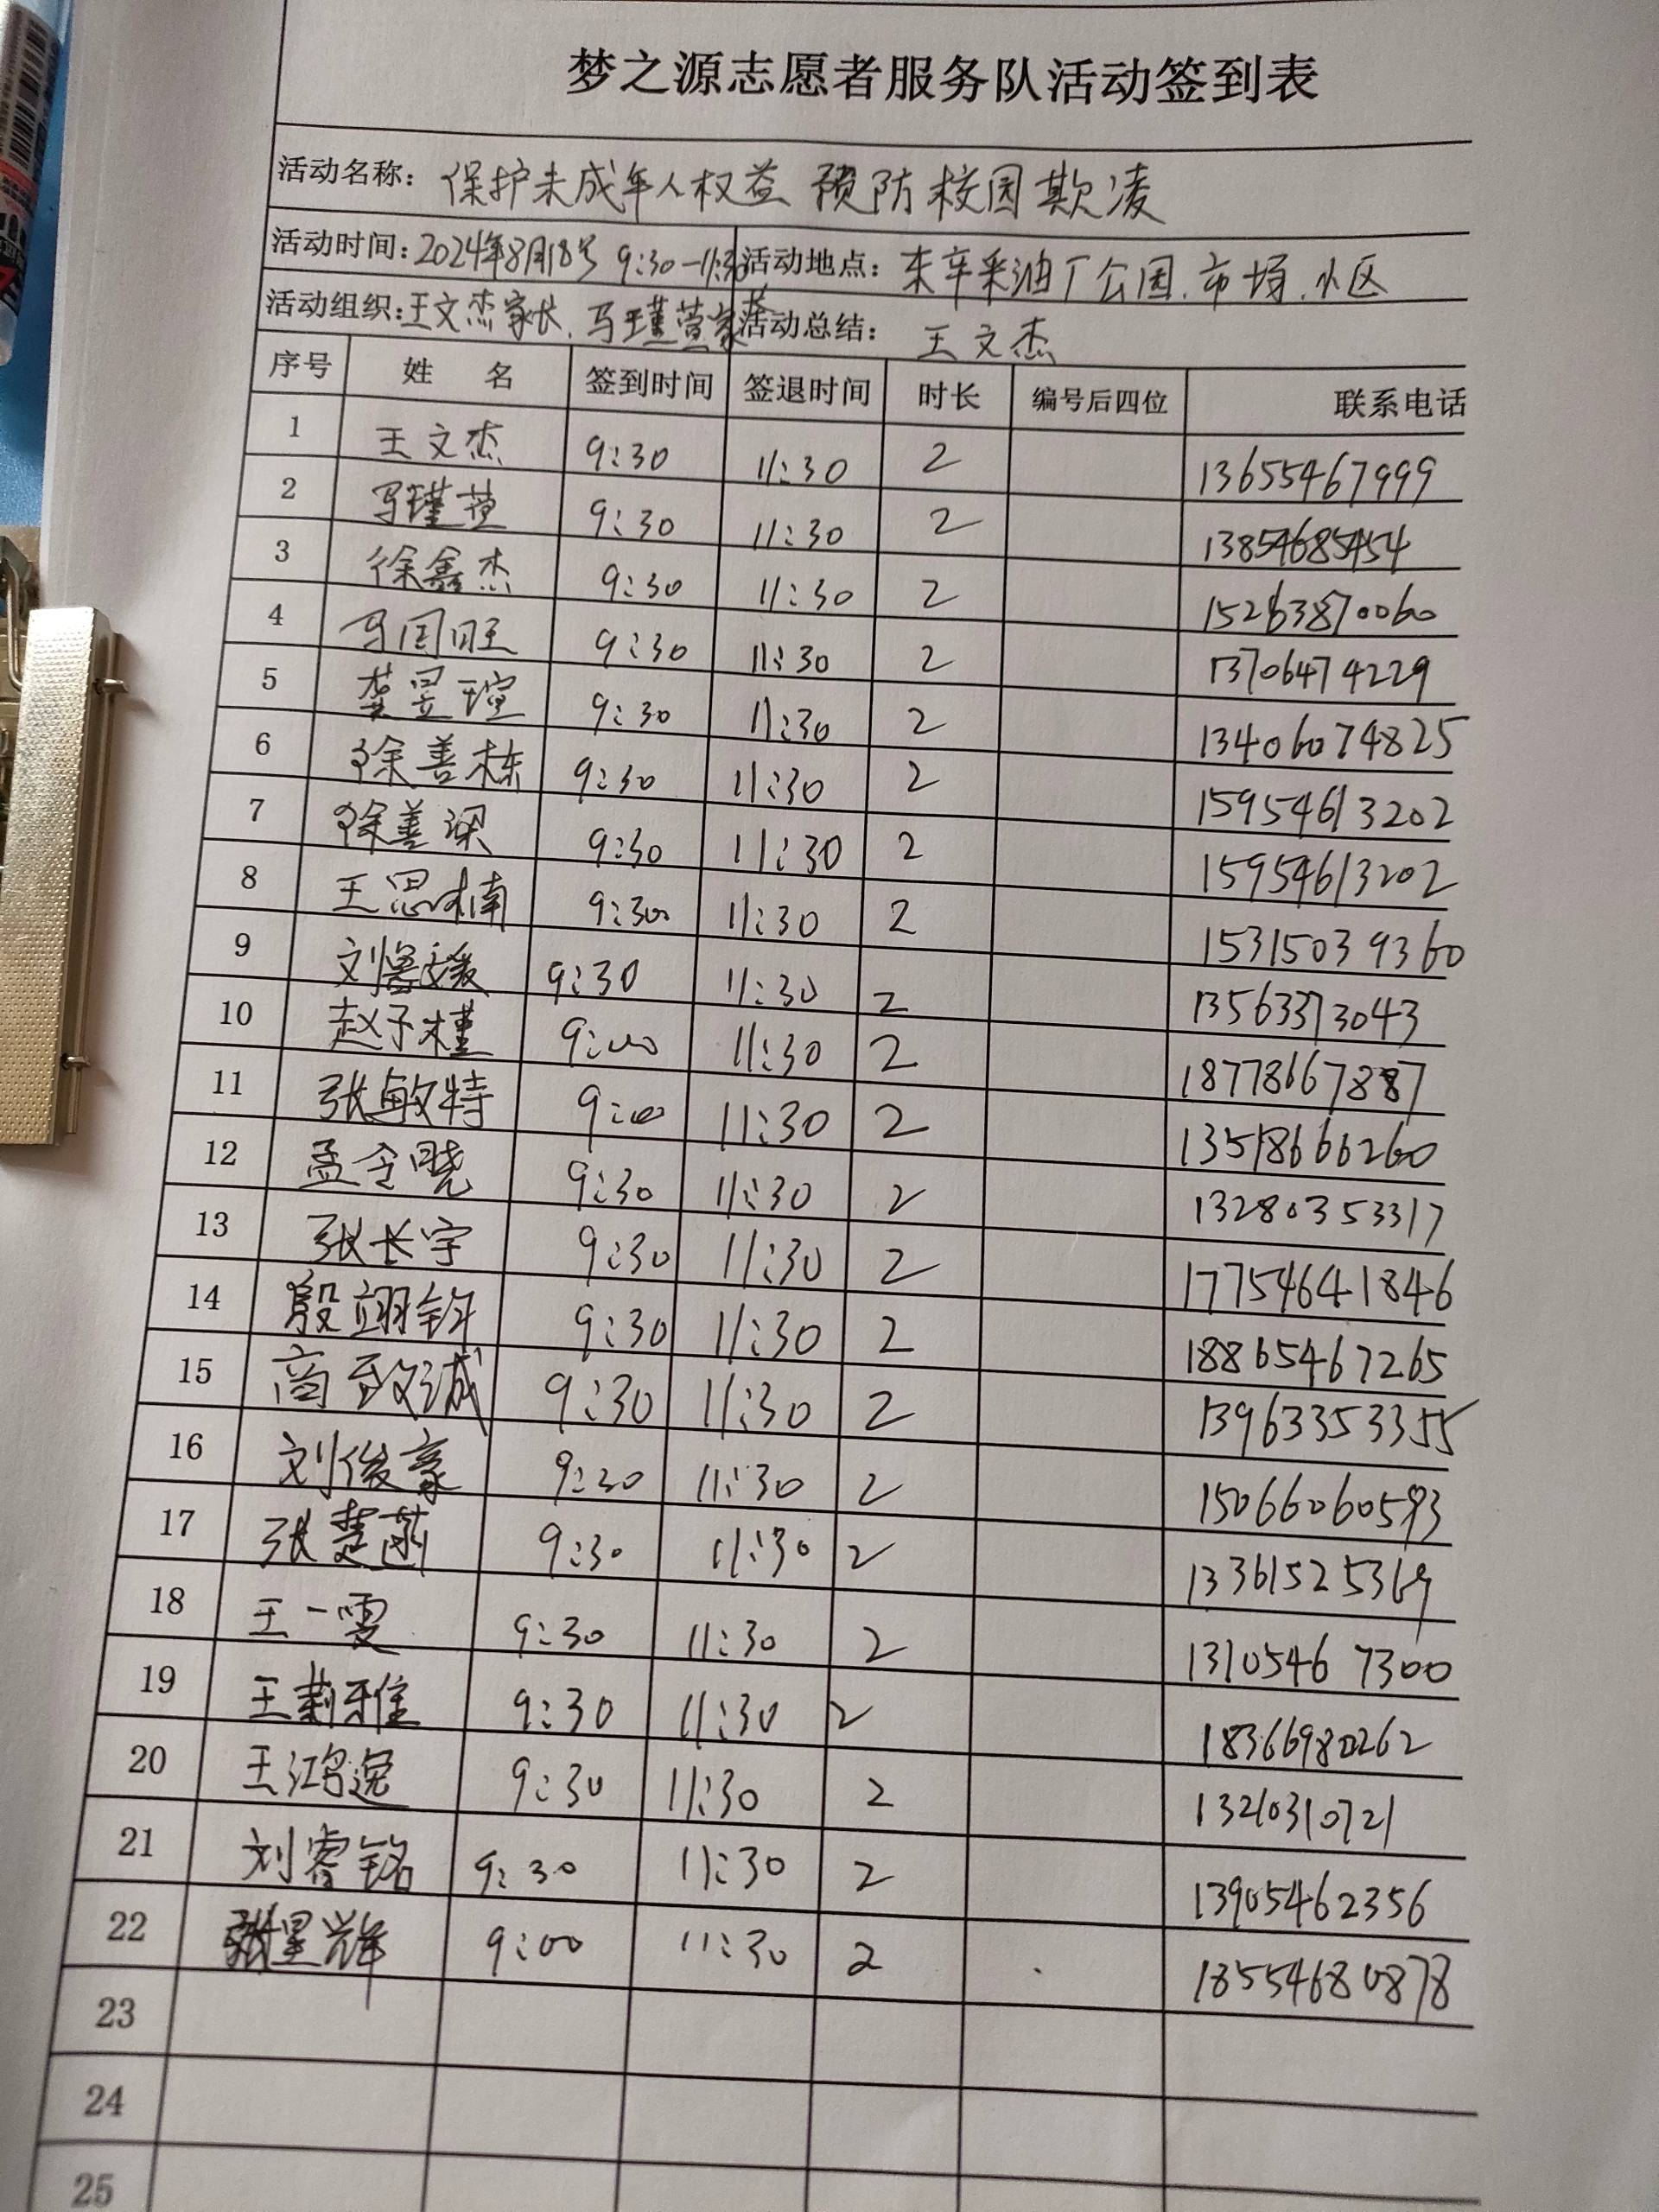 梦之源志愿者服务队活动签到表
活动名称：保护未成年人权益 预防校园欺凌
活动时间：2024年8月18号 9:30-11:30 活动地点：东辛采油厂公园.市场.小区
活动组织：王文杰家长.马瑾萱家长 活动总结：王文杰
序号 姓 名 签到时间 签退时间 时长 编号后四位 联系电话
1 王文杰 9:30 11:30 2 13655467999
2 马瑾萱 9:30 11:30 2 13854685454
3 徐鑫杰 9:30 11:30 2 15263870060
4 马国旺 9:30 11:30 2 13706474229
5 龚昱瑄 9:30 11:30 2 13406074825
6 徐善栋 9:30 11:30 2 15954613202
7 徐善梁 9:30 11:30 2 15954613202
8 王思楠 9:30 11:30 2 15315039360
9 刘 9:30 11:30 2 13563373043
10 赵子槿 9:00 11:30 2 18778667887
11 张敏特 9:00 11:30 2 13518666260
12 孟令晓 9:30 11:30 2 13280353317
13 张长宇 9:30 11:30 2 17754641846
14 殷翊钧 9:30 11:30 2 18865467265
15 商致诚 9:30 11:30 2 13963353355
16 刘俊豪 9:30 11:30 2 15066060593
17 张楚菡 9:30 11:30 2 13361525369
18 王一雯 9:30 11:30 2 1310546 7300
19 王莉雅 9:30 11:30 2 18366980262
20 王鸿逸 9:30 11:30 2 13210310721
21 刘睿铭 9:30 11:30 2 13905462356
22 张星辉 9:00 11:30 2 18554680878
23
24
25